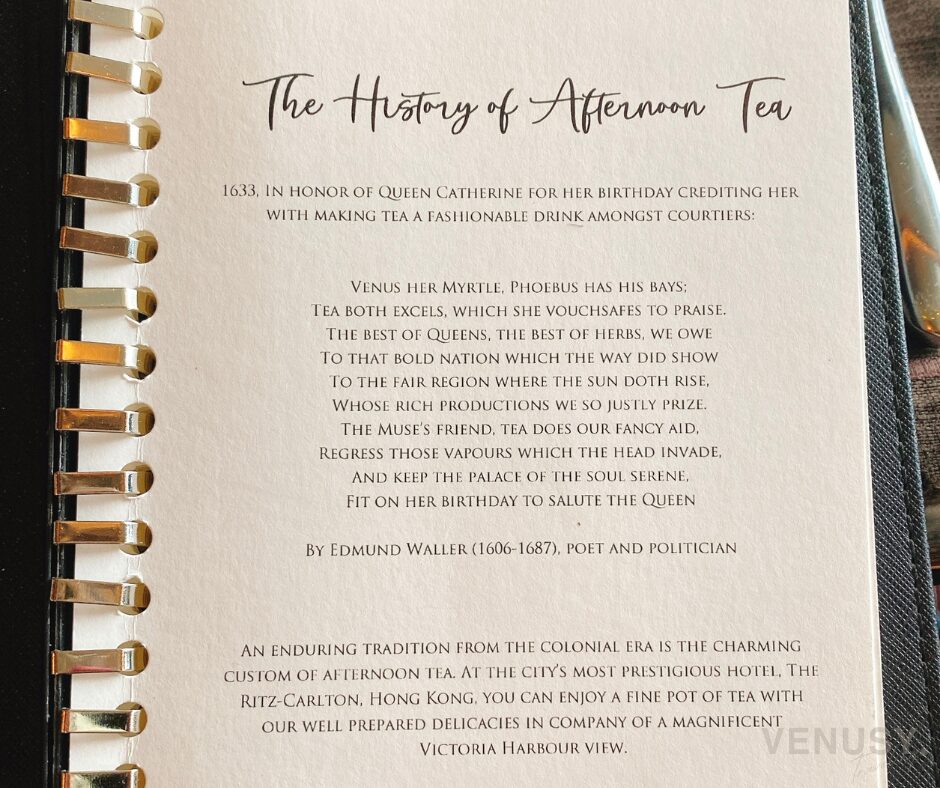 The History of Afternoon Tea
1633, In honor of Queen Catherine for her birthday crediting her
with making tea a fashionable drink amongst courtiers:
Venus her Myrtle, Phoebus has his bays;
Tea both excels, which she vouchsafes to praise.
The best of Queens, the best of herbs, we owe
To that bold nation which the way did show
To the fair region where the sun doth rise,
Whose rich productions we so justly prize.
The Muse's friend, tea does our fancy aid,
Regress those vapours which the head invade,
And keep the palace of the soul serene,
Fit on her birthday to salute the Queen
By Edmund Waller (1606-1687), poet and politician
An enduring tradition from the colonial era is the charming
custom of afternoon tea. At the city's most prestigious hotel, The
Ritz-Carlton, Hong Kong, you can enjoy a fine pot of tea with
our well prepared delicacies in company of a magnificent
Victoria Harbour view.